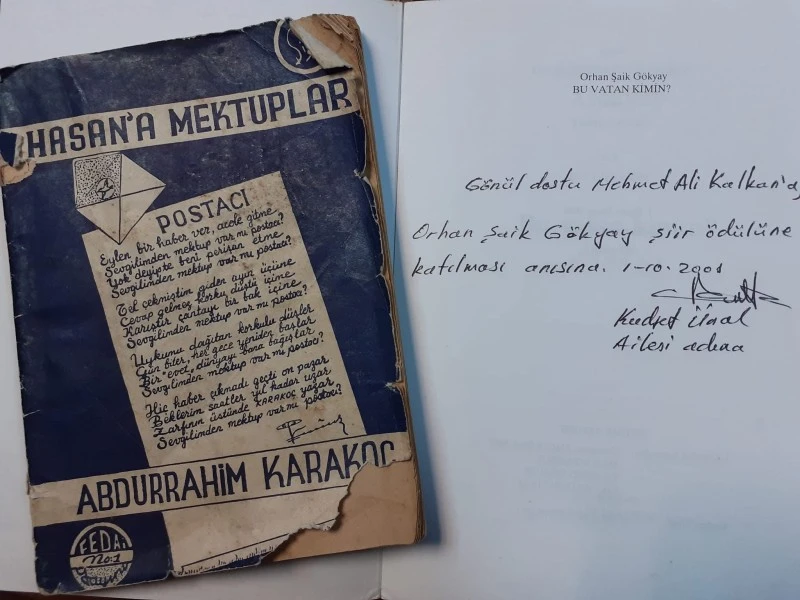 HASAN'A MEKTUPLAR
POSTACI
Eylen bir haber ver, acele gitme
Sevgilimden mektup var mı postacı?
Yok deyipte beni perişan etme
Sevgilimden mektup var mı postacı?
Tel çekmiştim giden ayın üçüne
Cevap gelmez korku düştü içime
Karıştır çantayı bir bak içine
Sevgilimden mektup var mı postacı?
Uykumu dağıtan korkulu düşler
Gün biter, her gece yeniden başlar
Bir "evet" dünyayı bana bağışlar
Sevgilimden mektup var mı postacı?
Hiç haber çıkmadı geçti on pazar
Beklerim saatler yıl kadar uzar
Zarfının üstünde KARAKOÇ yazar
Sevgilimden mektup var mı postacı?
ABDURRAHİM KARAKOÇ
FEDAİ
No:1
Orhan Şaik Gökyay
BU VATAN KİMİN?
Gönül dostu Mehmet Ali Kalkan'a,
Orhan Şaik Gökyay şiir ödülüne
katılması anısına. 1-10-2001
Kudret Ünal
Ailesi adına